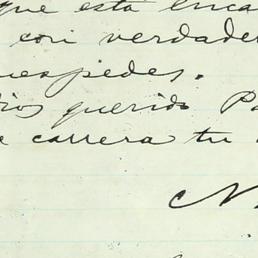 que está enca
con verdader
uespedes.
ios querido Pa
e carrera tu